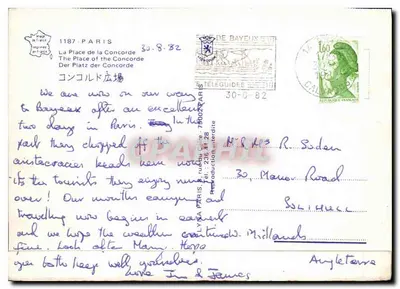 1187 - PARIS
La Place de la Concorde
The Place of the Concorde
Der Platz der Concorde
コンコルド広場
30.8.82
We are now on our way
to Bayeux after an excellent
two days in Paris. In the
past they chopped off the
aristocracies heads here now
its the tourists they enjoy
over! Our months camping and
travelling now begins in earnest
and we hope the weather continues
fine. Look after Mam. Hope
you both keep well yourselves.
Love Jim & James
DE BAYEUX
30-8-82
1,60
M & Mrs R. Soden
30, Manor Road
SOLIHULL
Midlands
Angleterre
PARIS
75002 PARIS
236
28
Reproduction interdite